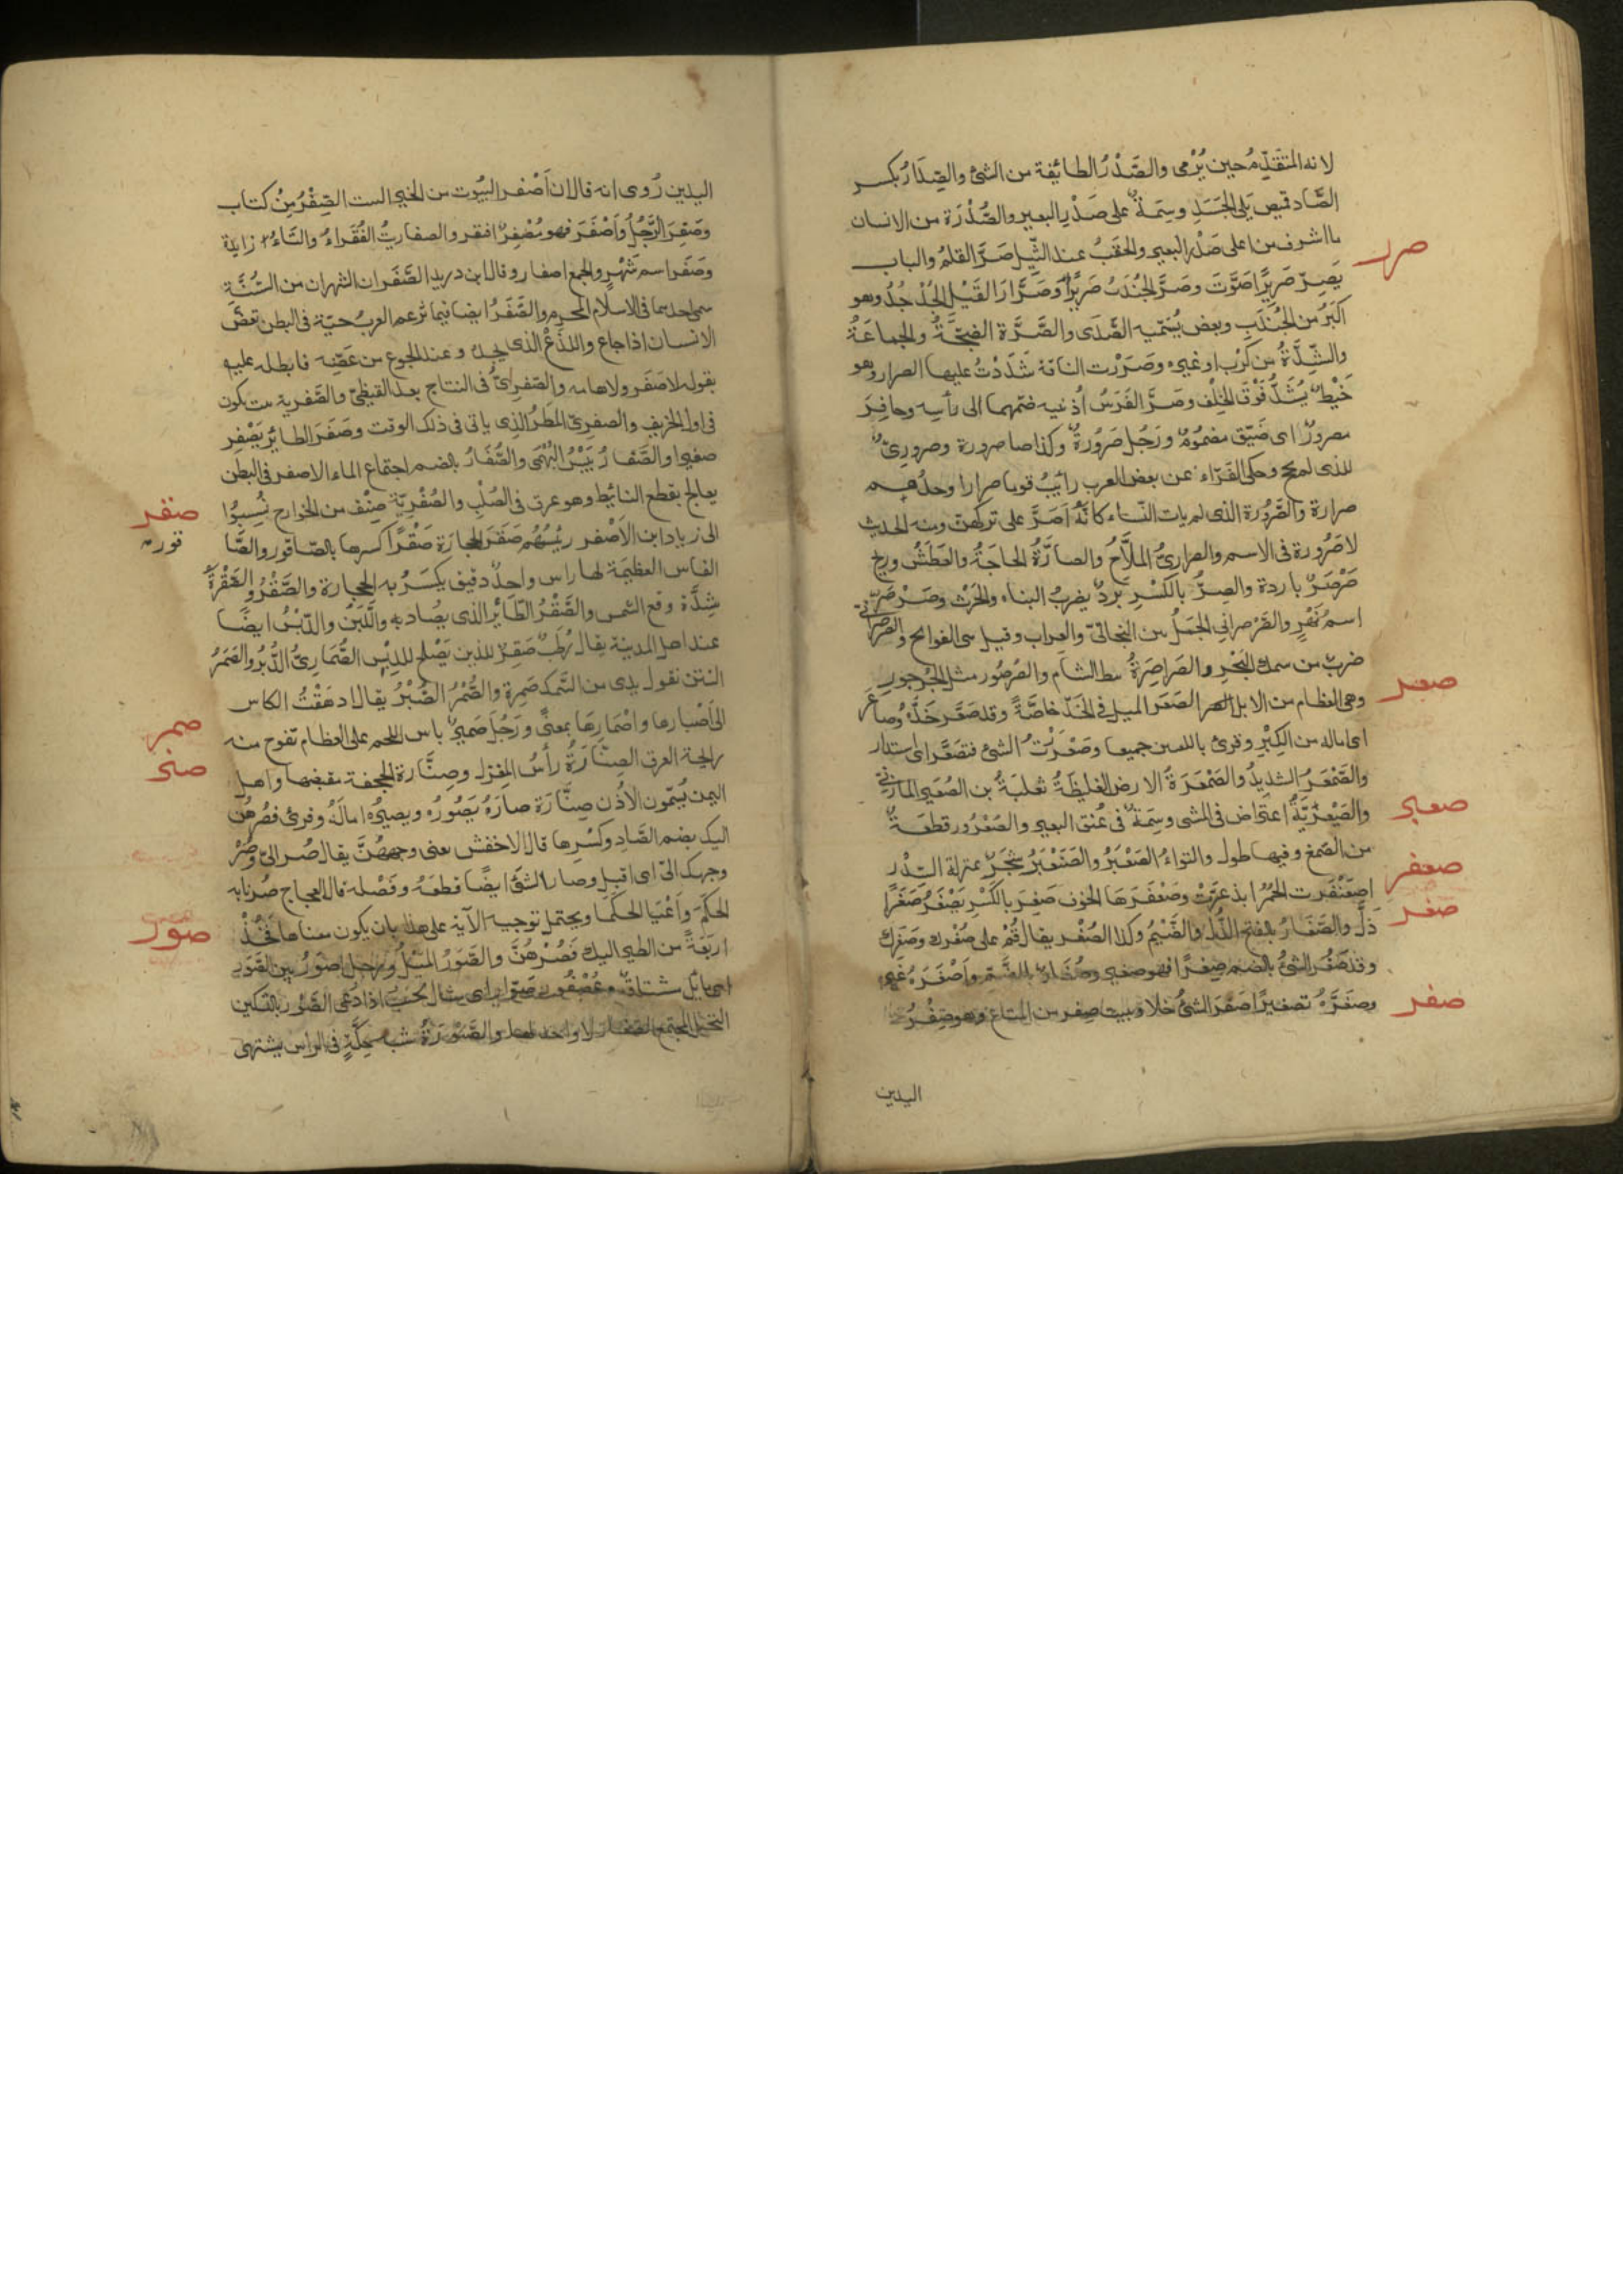 لانه المتقدّم حين يُرْمى والصَّدْرُ الطائفة من الشئ والصِّدَارُ بكسر
الصَّاد قميص يَلى الجَسَدِ وسِمَةٌ على صَدْرِ البعير والصُّدْرَة من الانسان
ما اشرف من اعلى صَدْرِه البعير والحقَبُ عند الثِّيل صَرَّ القلمُ والباب
صرر
يَصِرّ صَرِيرًا صَوَّتَ وصَرَّ الجُنْدَبُ صَرِيرًا وَصَرَّارَ اللَّيْلِ الجُدْجُدُ وهو
اكبَرُ من الجُنْدَبِ وبعض يُسَمّيه الصَّدَى والصَّرَّة الضجّةُ والجماعَةُ
والشِّدَّةُ من كَرْب او غيره وصَرَرْت الناقة شَدَدْتُ عليها الصرار وهو
خَيْطٌ يُشَدُّ فَوْقَ الخِلْف وصَرَّ الفَرَسُ اُذنيه ضمّهما الى رأسِه وحافِرٌ
مصرورٌ اى ضَيّق مضمُومٌ ورَجُل صَرُورَةٌ وكذا صارورة وصروريٌّ
للذى لم يحج وحكى الفَرّاء عن بعض العرب رأيتُ قوما صرارا وحدُهم
صرارة والصَّرُورَة الذى لم يات النّساء كانّهُ اَصَرَّ على تركهنّ ومنه الحديث
لا صَرُورة فى الاسم والصراريُّ المَلَّاحُ والصارَّةُ الحاجَةُ والعَطَشُ وريح
صَرْصَرٌ باردة والصِرُّ بالكَسْرِ بَرْدٌ يضرِبُ النبات والحَرْث وصَرْصَرٌ
اسمُ نَهْرٍ والصَّرْصرانى الجَمَلُ من البَخَاتىّ والعِراب وقيل هى الفوالج والصرصرانىّ
ضربٌ من سمك البَحْر والصَراصِرَةُ نبط الشام والصُرصُور مثل الجُرجور
وهى العظام من الابل الصَعَر الميل فى الخَدّ خاصّةً وقد صَعّر خَدَّهُ وصاعَرَ
صعر
اى اماله من الكِبْرِ وقرئ باللغتين جميعا وصَعْرَرْتُ الشئ فتصَعْرَرَ اى استدار
والصَّمْعَرُ الشديدُ والصَمْعَرَةُ الارض الغليظَةُ ثعلبَةُ بن الصُعَير المازنىّ
والصَيْعَرِيّةُ اعتراض فى المشى وسِمَةٌ فى عُنق البعير والصُعْرُور قطعَةٌ
صعبر
من الصَمغ وفيها طول والتواءُ الصَعْبَرُ والصَنَعْبَرُ شَجَرٌ بمنزلة السِّدْر
صعفر
اصعَنْفَرت الحُمُرُ ابذعرّتْ وصَعْفَرَهَا الخوف صَغِرَ بالكَسْرِ يَصْغَرُ صَغَرًا
صغر
ذَلَّ والصَّغَارُ بالفتح الذُّلُّ والضَّيْمُ وكذا الصُغْر يقال قُمْ على صُغْرك وصَغَرِك
وقد صَغُر الشئُ بالضم صِغَرًا فهو صغير وصُغَارٌ بالضَّمِّ واَصْغَرَهُ غَيرُه
وصغَّرَهُ تصغيرًا صَفِرَ الشئُ خلا وبيت صِفر من المتاع وهو صِفْرُ
صفر
اليدين
اليدين رُوى انه قال ان اَصْفر البيُوت من الخير البيت الصِّفْرُ مِنْ كتاب
وصَفِرَ الرَّجُلُ وَاَصْفَرَ فهو مُصْفِرٌ افتقر والصفاريتُ الفُقَراءُ والتاءُ زايدة
وصَفَر اسم شَهْرٍ والجمع اصفار وقال ابن دريد الصَّفَران الشهران من السَّنَة
سمى احدهما فى الاسلام المحرم والصَّفَرُ ايضا فيما تزعم العربُ حيّة فى البطن تعضّ
الانسان اذا جاع واللذْعُ الذى يجدُ عند الجوع من عَضِّه فابطله عليه
بقوله لا صَفَر ولا هامه والصَّفَرىُّ فى النتاج بعد القيظىّ والصَّفرية تكون
فى اول الخريف والصفرىّ المَطرُ الذى ياتى فى ذلك الوقت وصَفَرَ الطائر يَصْفِر
صفيرا والصَّفارُ يَبِيْسُ البُهْمَى والصُّفَارُ بالضم اجتماع الماء الاصفر فى البطن
يعالج بقطع النائط وهو عرق فى الصُلْبِ والصُفْرِيّة صِنْف من الخوارج نُسِبُوا
الى زياد ابن الاَصْفر رئيسُهُم صَقَرَ الحِجارَةَ صَقْرًا كسرها بالصّاقور والصَّا
صقر
قورة
الفاس العظيمَة لها راس واحدٌ دقيق يكسَرُ به الحجارة والصَّقْرُ والصَّقْرَةُ
شِدَّة وقع الشمس والصَّقْرُ الطَائِرُ الذى يُصَاد به واللَّبَنُ والدِّبْسُ ايضًا
عند اهل المدينة يقال رُطَبٌ صَقِرٌ للذى يَصْلح للدِبْسِ الصُّمَارِىُّ الدُّبُرُ والصَمَرُ
النتن نقول يدى من السَّمَك صَمِرَة والصُّمْرُ الصُّبْرُ يقال ادهَقْتُ الكاس
الى اَصْبارها واصْمَارِهَا بمعنىً ورَجُل صَمِيرٌ يابس اللحم على العظام تفوح منه
صمر
رايحة العرق الصِنّارَةُ رأسُ المِغزل وصِنّارة الحجفة مقبضها واهل
صنر
اليمن يُسَمّون الاُذن صِنّارَة صارَهُ يَصُورُهُ ويصيرُهُ امالَهُ وقرئ فصُرهُنّ
اليك بضم الصَّادِ وكسْرِها قال الاخفش يعنى وجههُنَّ يقال صُر الىّ وصُرْ
وجهك الىّ اى اقبل وصار الشئ ايضًا قطعَهُ وفَصْله قال العجاج صُرنا به
صور
الحكَمَ وَاَعْيَا الحكَمَا ويحتمل توجيه الآية على هذا بان يكون معناها فَخُذْ
اربَعَةً من الطير اليك فَصُرْهُنَّ والصَّوَرُ المَيَلُ ورجل اصوَرُ بين الصَّوَر
اى مائل مشتاق وعُصْفُور صَوّار اى يجيب اذا دُعى الصَّوْر بالتسكين
النخل المجتمع الصغار لا واحد لها والصَّوْرَةُ شبه حِكَّةٍ فى الراس يشتهى